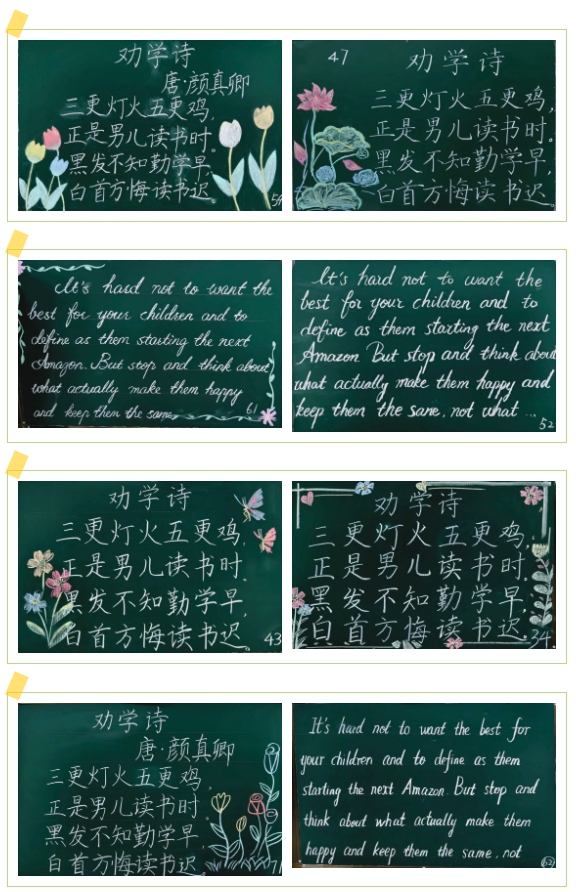 劝学诗
唐·颜真卿
三更灯火五更鸡,
正是男儿读书时。
黑发不知勤学早,
白首方悔读书迟。
47
劝学诗
三更灯火五更鸡,
正是男儿读书时。
黑发不知勤学早,
白首方悔读书迟。
It's hard not to want the
best for your children and to
define as them starting the next
Amazon. But stop and think about
what actually make them happy
and keep them the same,
61
It's hard not to want the
best for your children and to
define as them starting the next
Amazon But stop and think about
what actually make them happy and
keep them the same, not what ...
52
劝学诗
三更灯火五更鸡,
正是男儿读书时.
黑发不知勤学早,
白首方悔读书迟。
43
劝学诗
三更灯火五更鸡,
正是男儿读书时.
黑发不知勤学早,
白首方悔读书迟.
34
劝学诗
唐·颜真卿
三更灯火五更鸡,
正是男儿读书时.
黑发不知勤学早,
白首方悔读书迟.
It's hard not to want the best for
your children and to define as them
starting the next Amazon. But stop and
think about what actually make them
happy and keep them the same, not